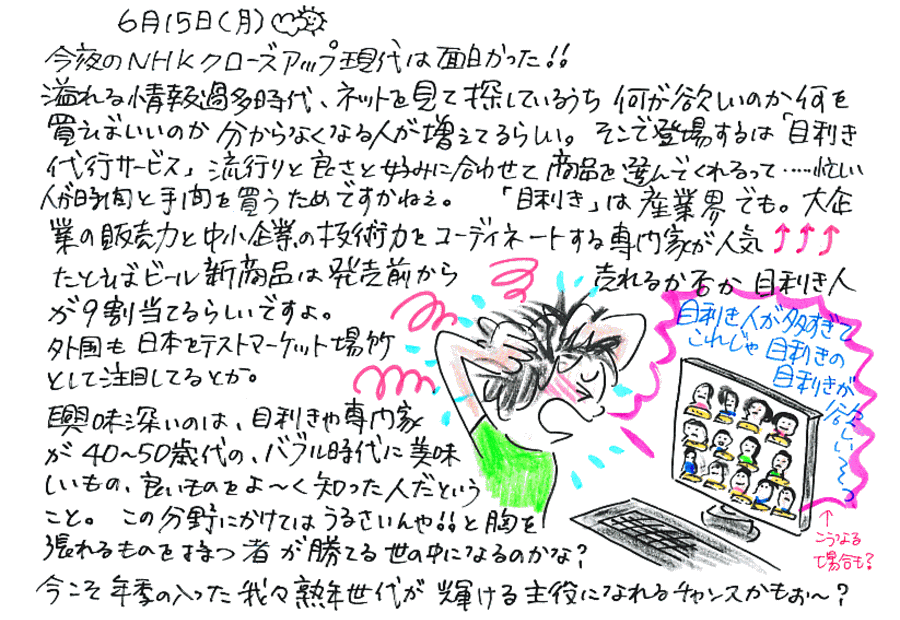 6月15日(月)
今夜のNHKクローズアップ現代は面白かった!!
溢れる情報過多時代、ネットを見て探しているうち何が欲しいのか何を
買えばいいのか分からなくなる人が増えてるらしい。そこで登場するは「目利き
代行サービス」流行りと良さと好みに合わせて商品を選んでくれるって……忙しい
人が時間と手間を買うためですかねぇ。「目利き」は産業界でも。大企
業の販売力と中小企業の技術力をコーディネートする専門家が人気↑↑↑
たとえばビール新商品は発売前から売れるか否か目利き人
が9割当てるらしいですよ。
外国も日本をテストマーケット場所
として注目してるとか。
興味深いのは、目利きや専門家
が40〜50歳代の、バブル時代に美味
しいもの、良いものをよ〜く知った人だという
こと。この分野にかけてはうるさいんや!!と胸を
張れるものを持つ者が勝てる世の中になるのかな?
今こそ年季の入った我々熟年世代が輝ける主役になれるチャンスかもぉ〜?
目利き人が多すぎて
これじゃ目利きの
目利きが
欲しい〜っ
↑
こうなる
場合も?